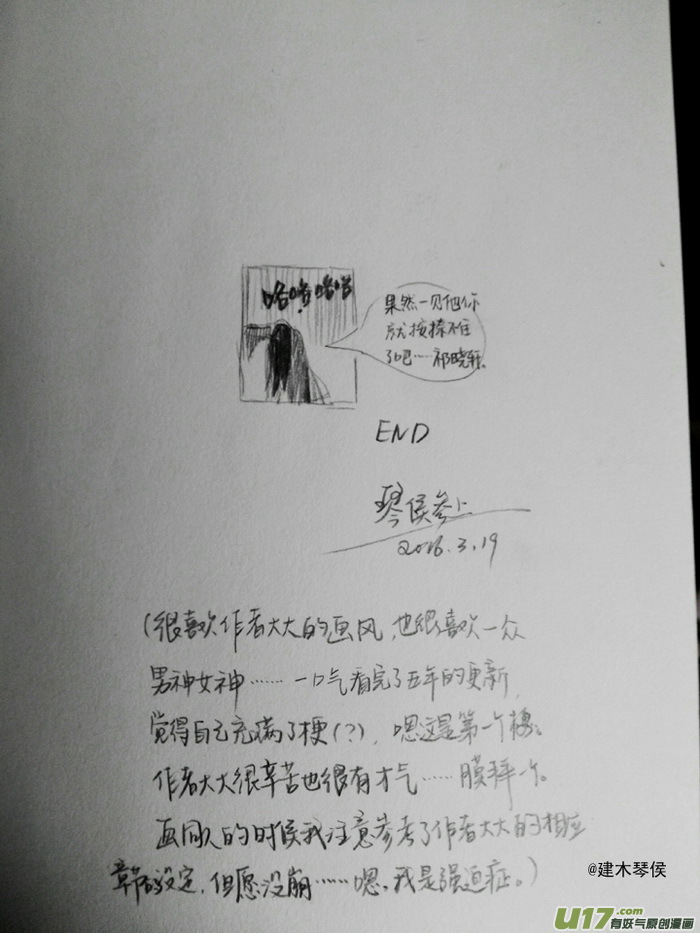 咯咯咯咯
果然一见他你
就按捺不住
了吧……祁晓轩。
END
琴侯参上
2016.3.19
(很喜欢作者大大的画风,也很喜欢一众
男神女神……一口气看完了五年的更新,
觉得自己充满了梗(?),嗯这是第一个梗。
作者大大很辛苦也很有才气……膜拜一个。
画同人的时候我注意参考了作者大大的相应
章的设定,但愿没崩……嗯,我是强迫症。)
@建木琴侯
U17.com
有妖气原创漫画